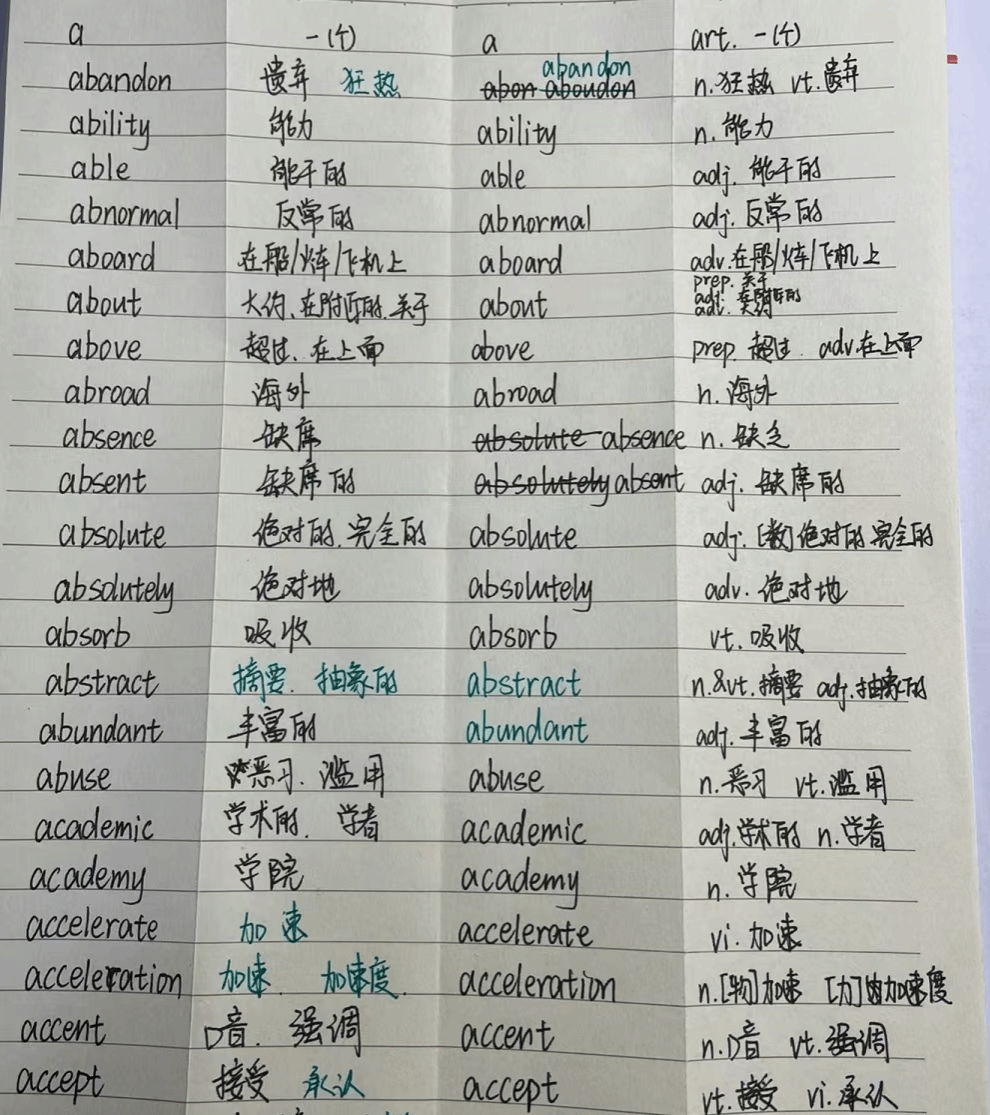 a 一(个) a art. 一(个)
abandon 遗弃 狂热 abon aboudon abandon n.狂热 vt.遗弃
ability 能力 ability n.能力
able 能干的 able adj.能干的
abnormal 反常的 abnormal adj.反常的
aboard 在船/火车/飞机上 aboard adv.在船/火车/飞机上
about 大约、在附近的、关于 about prep.关于 adj.在附近的 adv.大约
above 超过、在上面 above prep.超过. adv.在上面
abroad 海外 abroad n.海外
absence 缺席 absolute absence n.缺乏
absent 缺席的 absolutely absent adj.缺席的
absolute 绝对的、完全的 absolute adj.[数]绝对的 完全的
absolutely 绝对地 absolutely adv.绝对地
absorb 吸收 absorb vt.吸收
abstract 摘要、抽象的 abstract n.&vt.摘要 adj.抽象的
abundant 丰富的 abundant adj.丰富的
abuse 恶习、滥用 abuse n.恶习 vt.滥用
academic 学术的、学者 academic adj.学术的 n.学者
academy 学院 academy n.学院
accelerate 加速 accelerate vi.加速
acceleration 加速、加速度 acceleration n.[物]加速 [力]加速度
accent 口音、强调 accent n.口音 vt.强调
accept 接受 承认 accept vt.接受 vi.承认